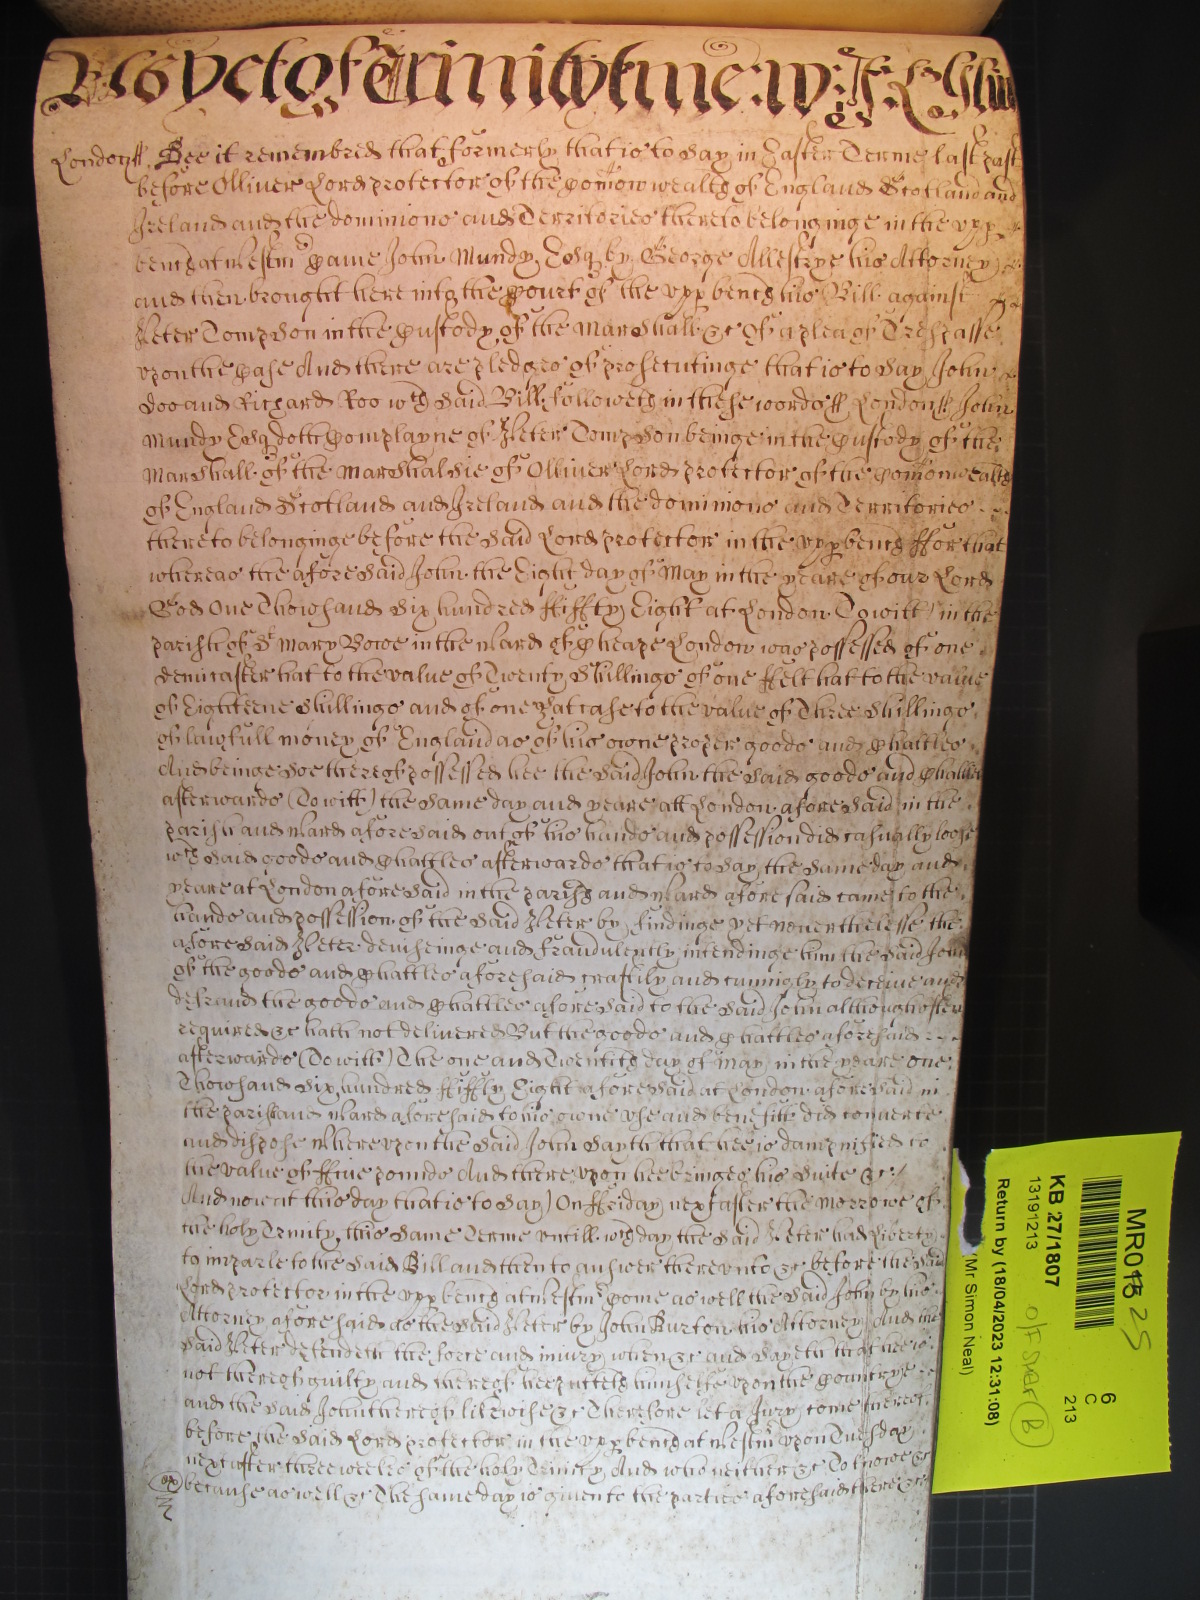 yet of Trinity terme:
London ss. Bee it remembred that formerly that is to say in Easter Terme last past
before Olliver Lord protector of the Comonwealth of England Scotland and
Ireland and the dominions and Territories thereto belonginge in the vpp
bench at Westmr Came John Mundy Esq by George Allestrye his Attorney
and then brought here into the Court of the vpp bench his Bill against
Peter Tompson in the Custody of the Marshall &c Of a plea of Trespasse
vpon the Case And there are pledges of prosecutinge that is to say John
Doo and Richard Roo wch said Bill followeth in these words ss London ss John
Mundy Esq doth Complayne of Peter Tompson beinge in the Custody of the
Marshall of the Marshalsie of Olliver Lord protector of the Comonwealth
of England Scotland and Ireland and the dominions and Territories
thereto belonginge before the said Lord protector in the vpp bench ffor that
whereas the aforesaid John the Eight day of May in the yeare of our Lord
God One Thowsand Six hundred ffiffty Eight at London (To witt) in the
parish of St Mary Bowe in the Ward of Cheape London was possessed of one
demicaster hat to the value of Twenty Shillings of one ffelt hat to the value
of Eighteene Shillings and of one hatcase to the value of Three Shillings
of lawfull money of England as of his owne proper goods and Chattles
And beinge soe thereof possessed hee the said John the said goods and Chattles
afterwards (To witt) the same day and yeare att London aforesaid in the
parish and Ward aforesaid out of his hands and possession did casually loose
wch said goods and Chattles afterwards that is to say the same day and
yeare at London aforesaid in the parish and Ward aforesaid came to the
hands and possession of the said Peter by findinge yet neverthelesse the
aforesaid Peter deviseinge and fraudulently intendinge him the said John
of the goods and Chattles aforesaid craftily and cunnigly to deceive and
defraud the goods and Chattles aforesaid to the said John although often
required &c hath not delivered But the goods and Chattles aforesaid
afterwards (To witt) The one and Twentith day of May in the yeare One
Thowsand Six hundred ffiffty Eight aforesaid at London aforesaid in
the parish and Ward aforesaid to his owne vse and benefitt did converte
and dispose Wherevpon the said John sayth that hee is dampnified to
the value of ffive pounds And therevpon hee bringes his suite &c
And now at this day that is to say) On ffriday next after the Morrowe of
the holy Trinity this same Terme vntill wch day the said Peter had liberty
to imparle to the said Bill and then to answer therevnto &c before the said
Lord protector in the vpp bench at Westmr Come as well the said John by his
Attorney aforesaid as the said Peter by John Burton his Attorney And the
said Peter defendeth the force and iniury when &c and sayeth that hee is
not thereof guilty and thereof hee putteth himselfe vpon the Countrye
and the said John thereof likewise &c Therefore let a Jury come thereof
before the said Lord protector in the vpp bench at Westmr vpon Tuesday
next after three weekes of the holy Trinity And who neither &c To knowe &c
because as well &c The same day is given to the parties aforesaid there &c
MR018 25
6
C
213
KB 27/1807
13191213
O/F Shelf B
Return by (18/04/2023 12:31:08)
(Mr Simon Neal)